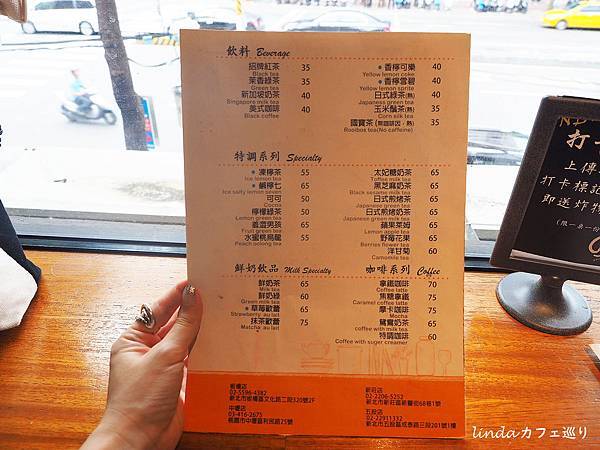 飲料 Beverage
招牌紅茶 35
Black tea
茉香綠茶 35
Green tea
新加坡奶茶 40
Singapore milk tea
美式咖啡 40
Black coffee
香檸可樂 40
Yellow lemon coke
香檸雪碧 40
Yellow lemon sprite
日式綠茶(熱) 40
Japanese green tea
玉米鬚茶(熱) 35
Corn silk tea
國寶茶(無咖啡因,熱) 35
Rooibos tea(No caffeine)
特調系列 Specialty
凍檸茶 55
Ice lemon tea
鹹檸七 65
Ice salty lemon seven
可可 50
Cocoa
檸檬綠茶 50
Lemon green tea
義濃男孩 65
Fruit green tea
水蜜桃烏龍 55
Peach oolong tea
太妃糖奶茶 65
Toffee milk tea
黑芝麻奶茶 65
Black sesame milk tea
日式煎烤茶 65
Japanese green tea
日式煎烤奶茶 65
Japanese green milk tea
蘋果萊姆 65
Lemon apple tea
野莓花果 65
Berries flower tea
洋甘菊 60
Camomile tea
鮮奶飲品 Milk Specialty
鮮奶茶 65
Milk tea
鮮奶綠 60
Green milk tea
草莓歐蕾 65
Strawberry au lait
抹茶歐蕾 75
Matcha au lait
咖啡系列 Coffee
拿鐵咖啡 70
Coffee latte
焦糖拿鐵 75
Caramel coffee latte
摩卡咖啡 75
Mocha
鴛鴦奶茶 65
Coffee with milk tea
特調咖啡 60
Coffee with suger creamer
板橋店
02-5596-4382
新北市板橋區文化路二段320號2F
中壢店
03-416-2675
桃園市中壢區利民路75號
新莊店
02-2206-5252
新北市新莊區新豐街68巷1號
五股店
02-22911332
新北市五股區成泰路三段201號1樓
打卡
上傳
打卡標記
即送炸物
(限一桌一份
lindaカフェ巡り